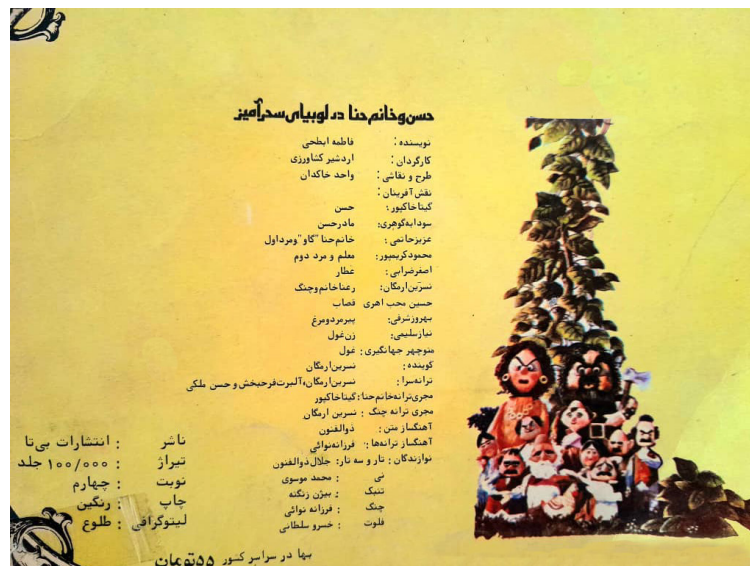 حسن و خانم حنا در لوبیای سحرآمیز
نویسنده : فاطمه ابطحی
کارگردان : اردشیر کشاورزی
طرح و نقاشی : واحد خاکدان
نقش آفرینان :
گیتا خاکپور : حسن
سودابه گوهری : مادر حسن
عزیز حاتمی : خانم حنا "گاو" و مرد اول
محمود کریمپور : معلم و مرد دوم
اصغر ضرابی : عطار
نسرین ارمگان : رعنا خانم و چنگ
حسین محب اهری قصاب
بهروز شرفی : پیر مرد و مرغ
نیاز سلیمی : زن غول
منوچهر جهانگیری : غول
گوینده : نسرین ارمگان
ترانه سرا : نسرین ارمگان، آلبرت فرحبخش و حسن ملکی
مجری ترانه خانم حنا : گیتا خاکپور
مجری ترانه چنگ : نسرین ارمگان
آهنگساز متن : ذوالفنون
آهنگساز ترانه ها : فرزانه نوائی
نوازندگان : تار و سه تار : جلال ذوالفنون
نی : محمد موسوی
تنبک : بیژن زنگنه
چنگ : فرزانه نوائی
فلوت : خسرو سلطانی
ناشر : انتشارات بی تا
تیراژ : ۱۰۰/۰۰۰ جلد
نوبت : چهارم
چاپ : رنگین
لیتوگرافی : طلوع
بها در سراسر کشور ۵۵ تومان